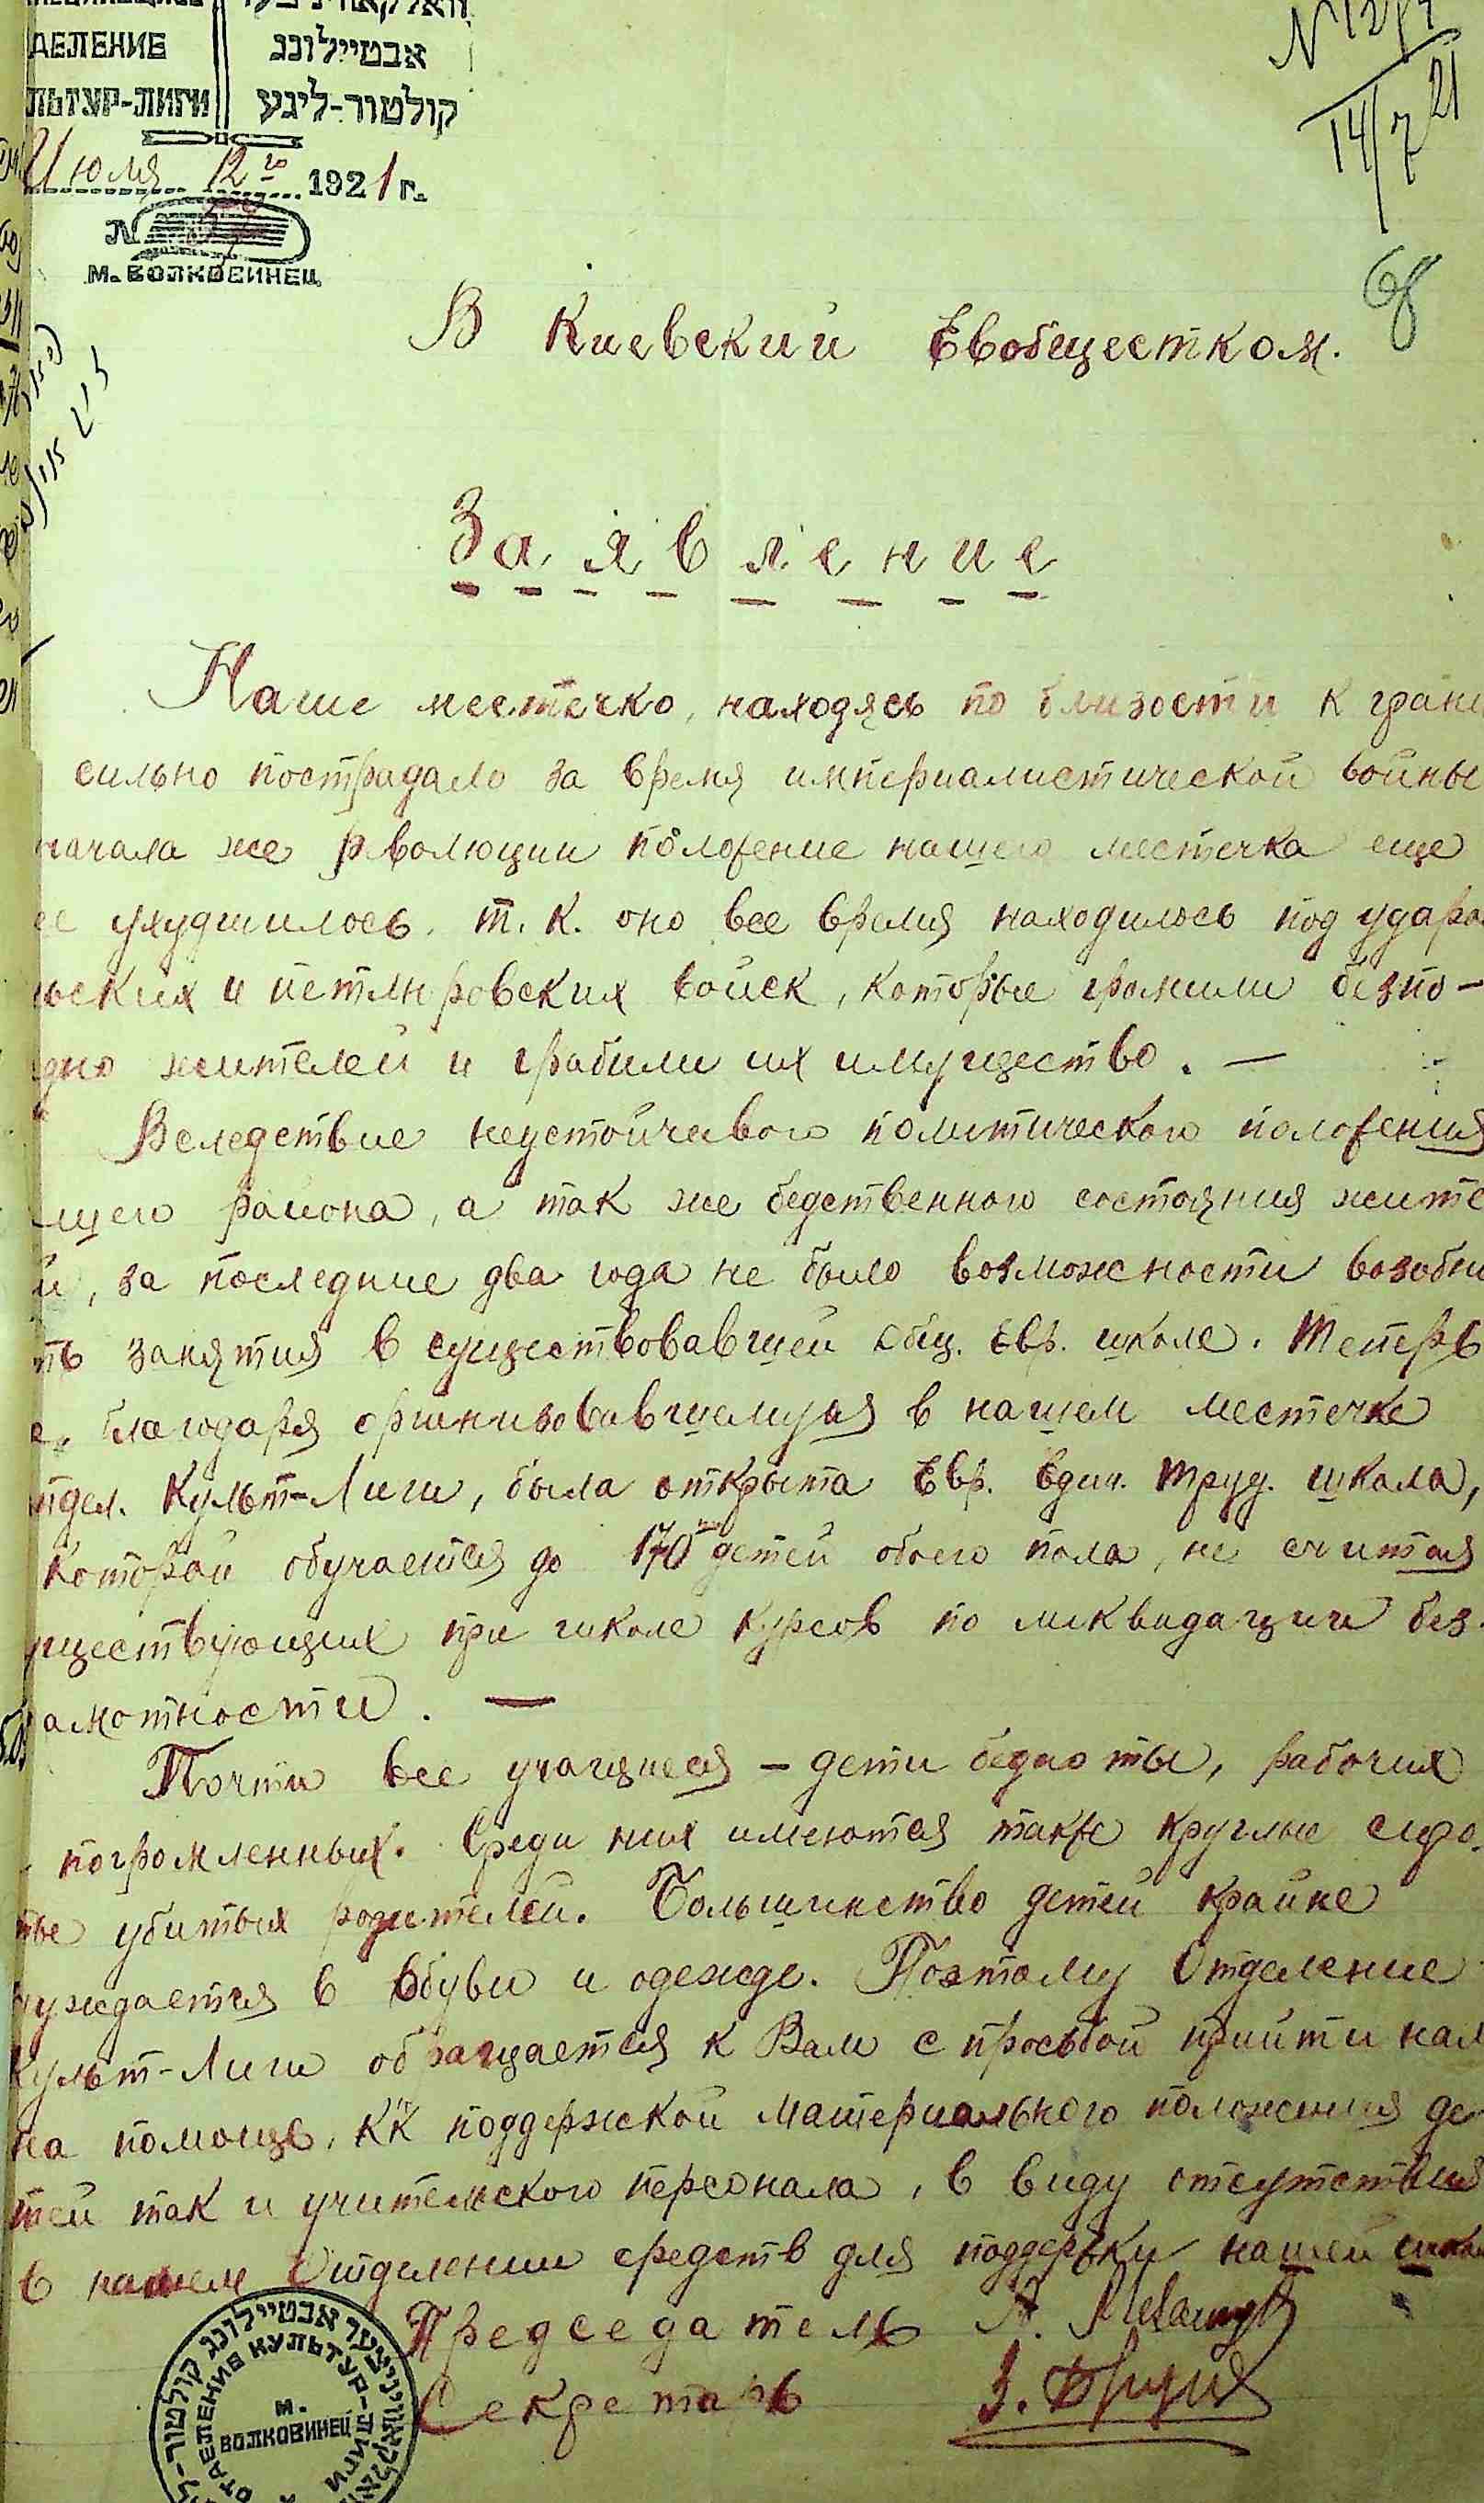 ДЕЛЕНИЕ אבטיילונג
ЛЬТУР-ЛИГИ קולטור-ליגע
Июля 12го 1921 г.
М. ВОЛКОВИНЕЦ
14/7 21
68
В Киевский Евобщестком.
Заявление
Наше местечко, находясь по близости к грани
сильно пострадало за время империалистической войны
начала же революции положение нашего местечка еще
ее ухудшилось, т.к. оно все время находилось под ударо
ьских и петлюровских войск, которые громили безпо-
дно жителей и грабили их имущество. —
Вследствие неустойчивого политического положения
шего района, а так же бедственного состояния жите
й, за последние два года не было возможности возобно
ть занятия в существовавшей общ. Евр. школе. Теперь
е, благодаря организовавшемуся в нашем местечке
тдел. Культ-Лиги, была открыта Евр. Един. Труд. школа,
которой обучается до 170 детей обоего пола, не считая
уществующих при школе курсов по ликвидации без-
амотности. —
Почти все учащиеся - дети бедноты, рабочих
погромленных. Среди них имеются также круглые сиро-
ты убитых родителей. Большинство детей крайне
нуждается в обуви и одежде. Поэтому Отделение
Культ-Лиги обращается к Вам с просьбой прийти нам
на помощь, как поддержкой материального положения де-
тей так и учительского персонала, в виду отсутствия
в нашем Отделении средств для поддержки нашей школ
Председатель
Секретарь
אבטיילונג קולטור-
ОТДЕЛЕНИЕ КУЛЬТУР-ЛИГИ
М.
ВОЛКОВИНЕЦ